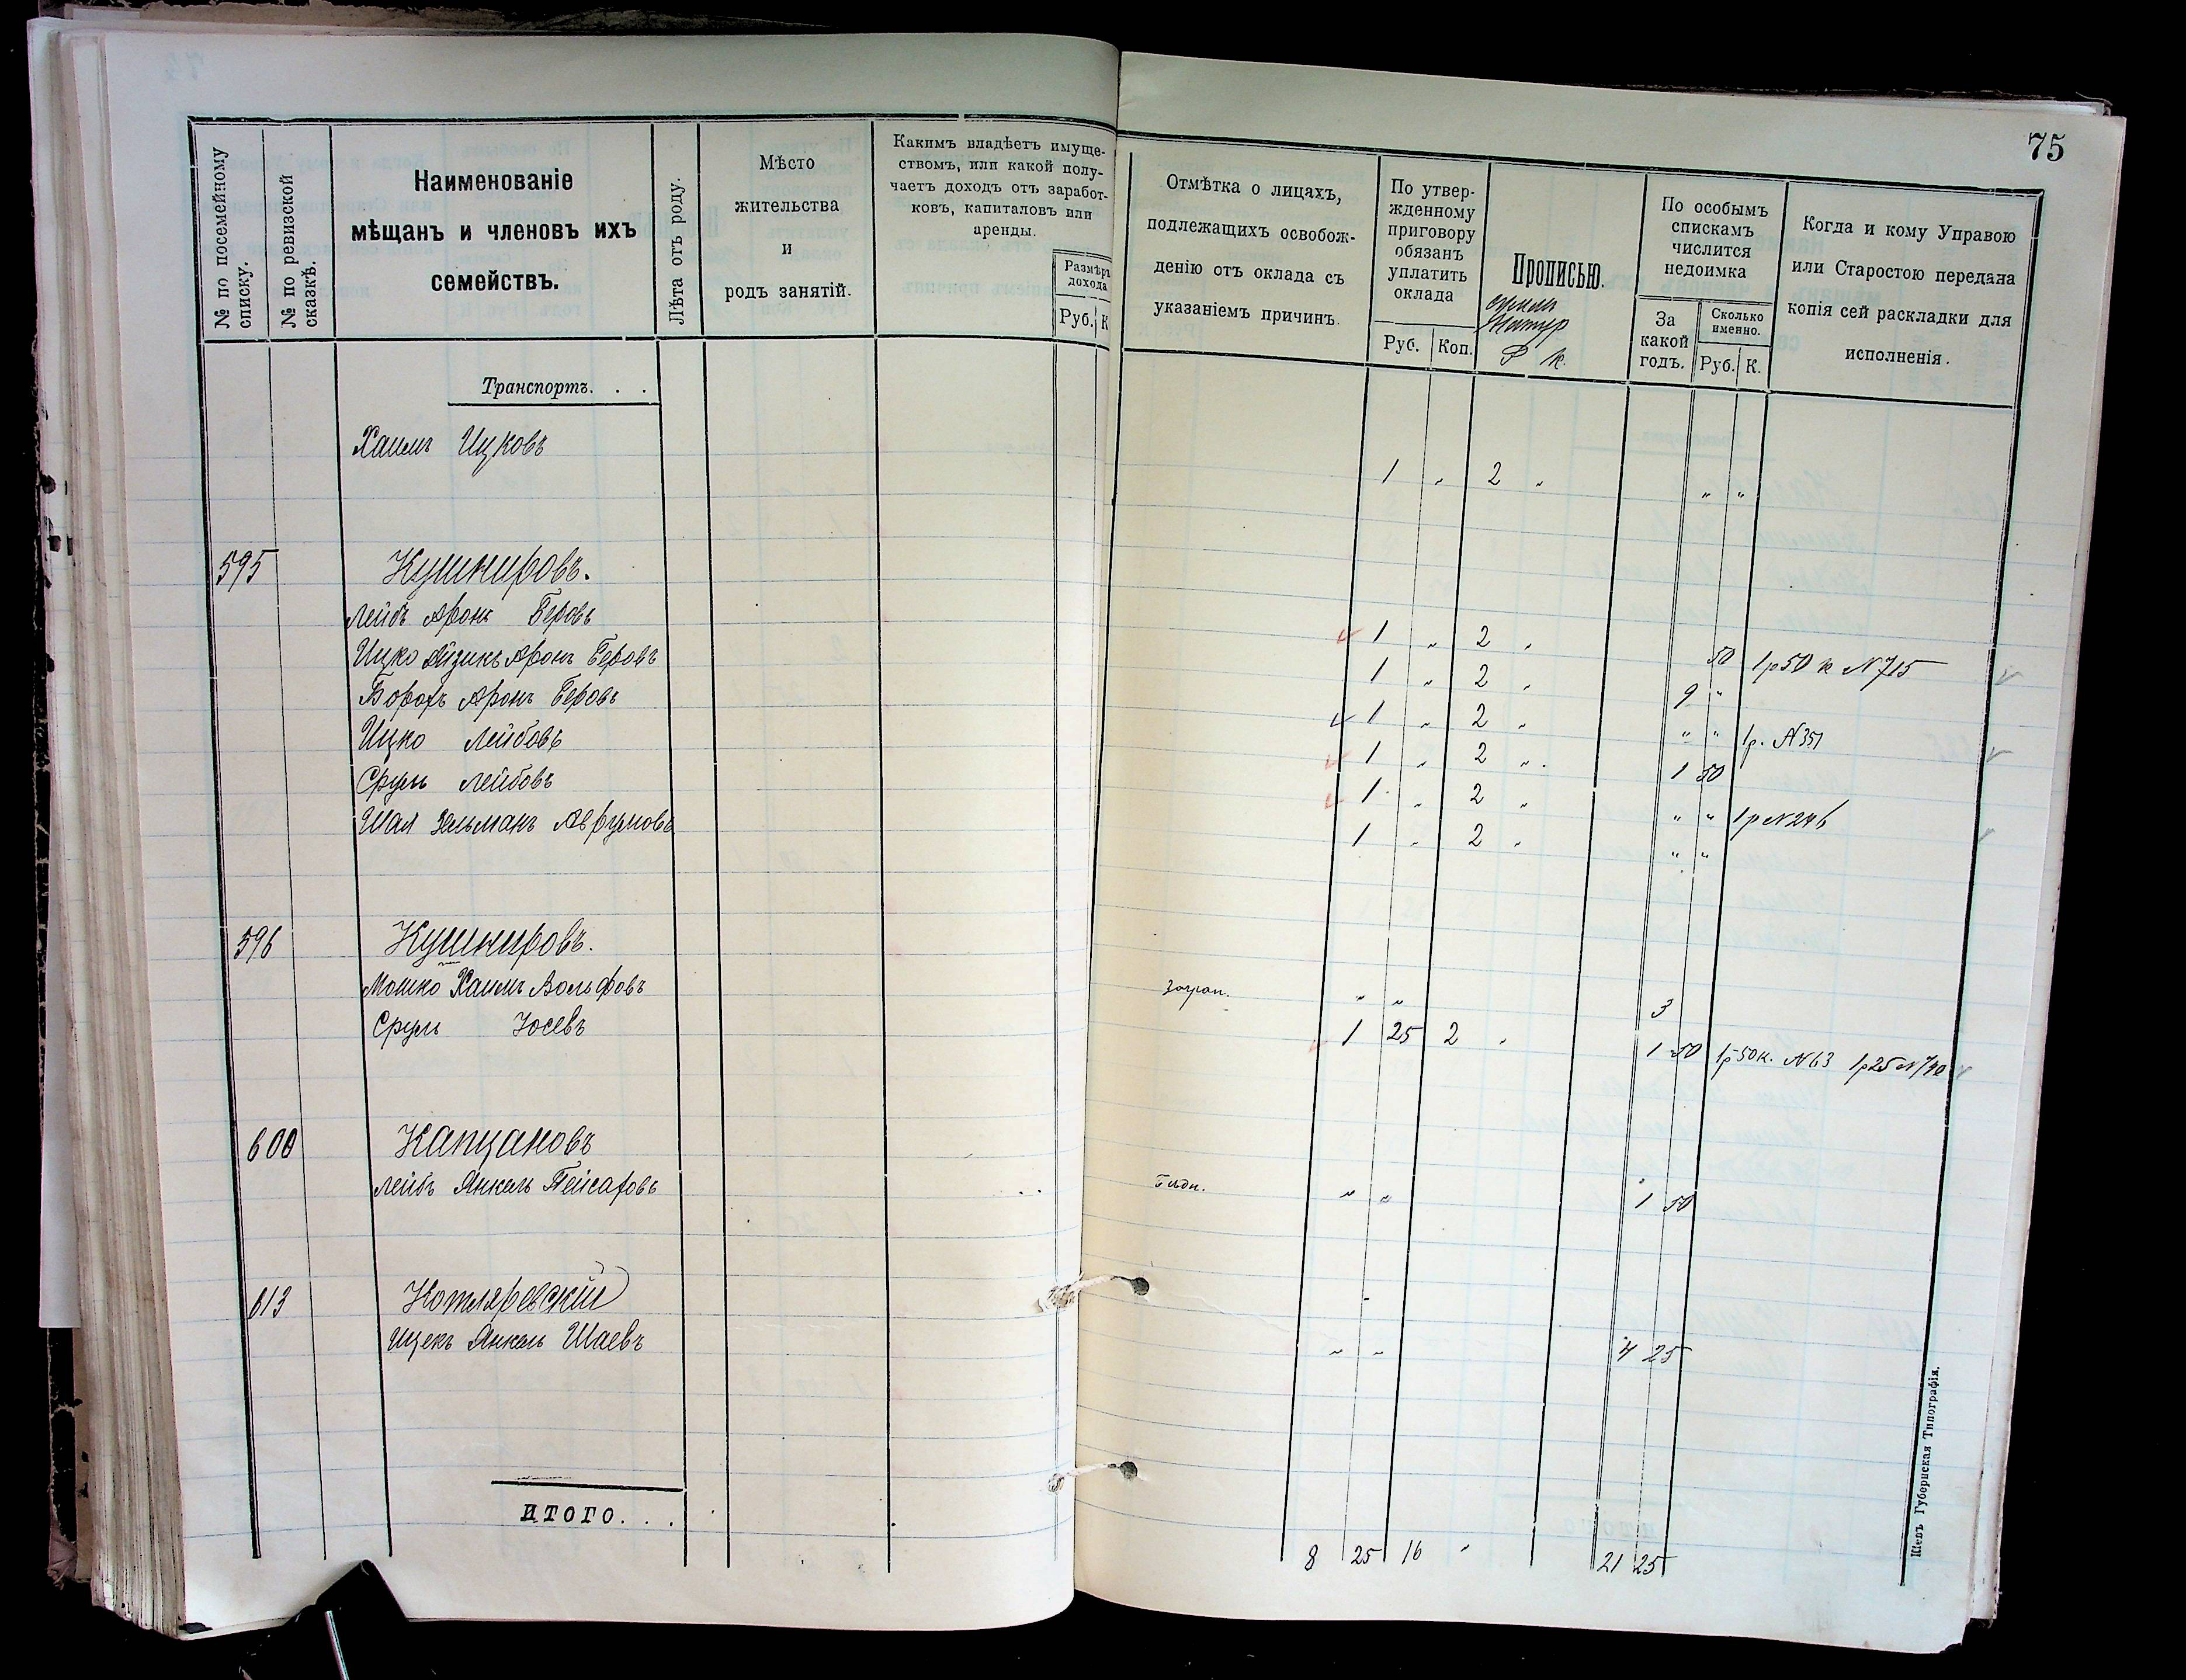 75
№ по посемейному списку.
№ по ревизской сказкѣ.
Наименованіе
мѣщанъ и членовъ ихъ
семействъ.
Лѣта отъ роду.
Мѣсто
жительства
и
родъ занятій.
Какимъ владѣетъ имуще-
ствомъ, или какой полу-
чаетъ доходъ отъ заработ-
ковъ, капиталовъ или
аренды.
Размѣръ
дохода
Руб. К
Отмѣтка о лицахъ,
подлежащихъ освобож-
денію отъ оклада съ
указаніемъ причинъ.
По утвер-
жденному
приговору
обязанъ
уплатить
оклада
Руб. Коп.
Прописью.
Р К.
По особымъ
спискамъ
числится
недоимка
За
какой
годъ.
Сколько
именно.
Руб. К.
Когда и кому Управою
или Старостою передана
копія сей раскладки для
исполненія.
Транспортъ. . .
Хаимъ Ицковъ 1 „ 2 „ „ „
595 Кушнировъ.
Лейбъ Аронъ Беровъ 1 „ 2 „ 50 1р 50 к N 715
Ицко Айзикъ Аронъ Беровъ 1 „ 2 „ 9 „
Борохъ Аронъ Беровъ 1 „ 2 „ „ „ 1р. N 351
Ицко Лейбовъ 1 „ 2 „ 1 50
Сруль Лейбовъ 1 „ 2 „ „ „ 1р N 246
Шая Зельманъ Аврумовъ 1 „ 2 „ „ „
596 Кушнировъ.
Мошко Хаимъ Вольфовъ загран. „ „ 3
Сруль Юсевъ 1 25 2 „ 1 50 1р 50к. N 63 1р 25 N 740
600 Капцановъ
Лейбъ Янкель Пейсаховъ бѣдн. „ „ 1 50
613 Котляревскій
Ицекъ Янкель Шаевъ „ „ 4 25
ИТОГО. . . 8 25 16 „ 21 25
Кіевъ Губернская Типографія.